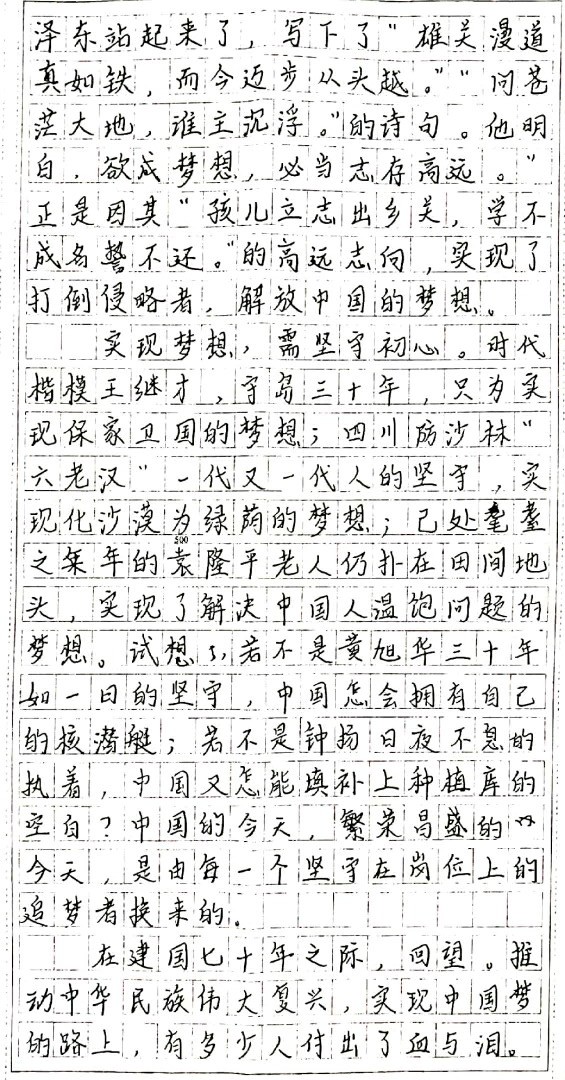 泽东站起来了，写下了“雄关漫道
真如铁，而今迈步从头越。”“问苍
茫大地，谁主沉浮。”的诗句。他明
白，欲成梦想，必当志存高远。”
正是因其“孩儿立志出乡关，学不
成名誓不还。”的高远志向，实现了
打倒侵略者，解放中国的梦想。
实现梦想，需坚守初心。时代
楷模王继才，守岛三十年，只为实
现保家卫国的梦想；四川防沙林“
六老汉”一代又一代人的坚守，实
现化沙漠为绿荫的梦想；已处耄耋
500
之年的袁隆平老人仍扑在田间地
头，实现了解决中国人温饱问题的
梦想。试想，若不是黄旭华三十年
如一日的坚守，中国怎会拥有自己
的核潜艇；若不是钟扬日夜不息的
执着，中国又怎能填补上种植库的
空白？中国的今天，繁荣昌盛的
今天，是由每一个坚守在岗位上的
追梦者换来的。
在建国七十年之际，回望。推
动中华民族伟大复兴，实现中国梦
的路上，有多少人付出了血与泪。